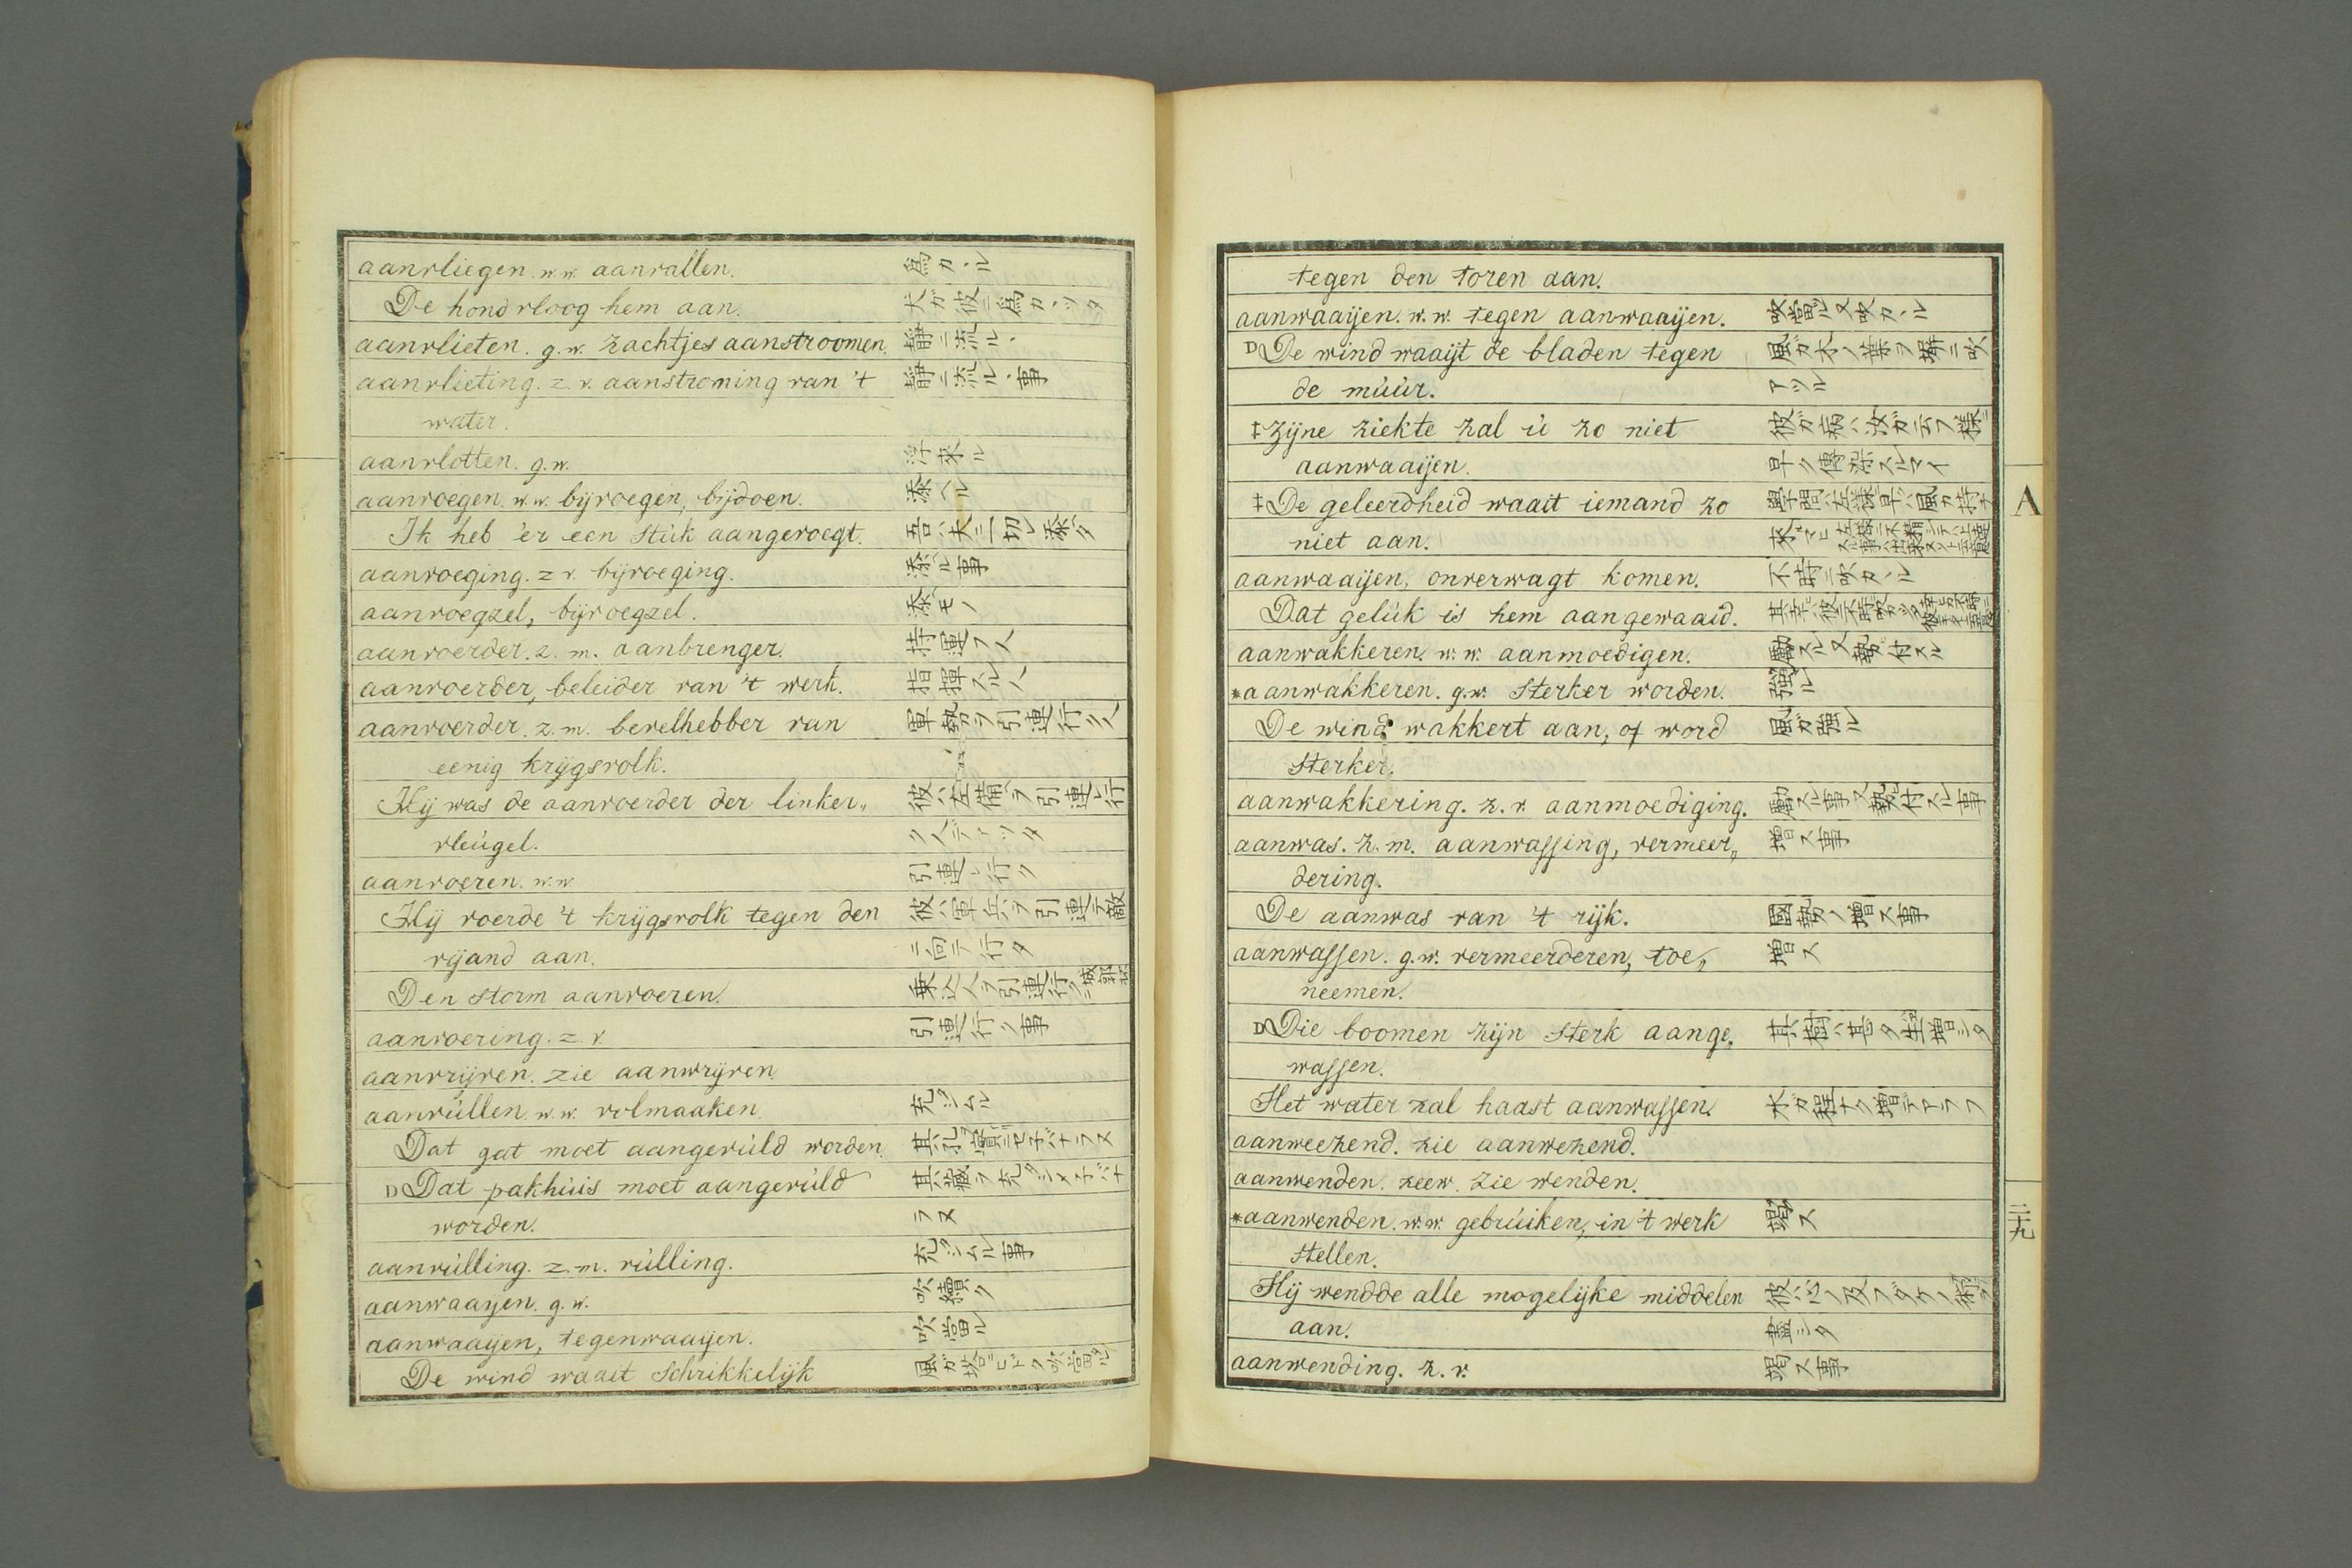 aanvliegen. w.w. aanvallen. 為カヽル
De hond vloog hem aan. 犬ガ彼ニ為カヽツタ
aanvlieten. g.w. zachtjes aanstroomen. 静ニ流ルヽ
aanvlieting. z.v. aanstroming van 't 静ニ流ルヽ事
water.
aanvlotten. g.w. 浮来ル
aanvoegen. w.w. bijvoegen, bijdoen. 添ヘル
Ik heb 'er een stúk aangevoegt. 吾ハ夫ニ一切レ添ヘタ
aanvoeging. z.v. bijvoeging. 添ヘル事
aanvoegzel, bijvoegzel. 添ヘモノ
aanvoerder. z.m. aanbrenger. 持運フ人
aanvoerder, beleider van 't werk. 指揮スル人
aanvoerder. z.m. bevelhebber van 軍勢ヲ引連行ク人
eenig krijgsvolk.
Hij was de aanvoerder der linker„ 彼ハ左備ヲ引連レ行
vleúgel. ク人デアツタ
aanvoeren. w.w. 引連レ行ク
Hij voerde 't krijgsvolk tegen den 彼ハ軍兵ヲ引連テ敵
vijand aan. ニ向テ行タ
Den storm aanvoeren. 乗込人ヲ引連行ク
aanvoering. z.v. 引連行ク事
aanvrijven. zie aanwrijven.
aanvúllen. w.w. volmaaken. 充タシムル
Dat gat moet aangevúld worden. 其孔ヲ填ニセ子バナラヌ
D Dat pakhúis moet aangevúld 其蔵ヲ充タシメ子バナ
worden. ラヌ
aanvúlling. z.m. vúlling. 充タシムル事
aanwaaijen. g.w. 吹續ク
aanwaaijen, tegenwaaijen. 吹當ル
De wind waait schrikkelijk 風ガ塔ニヒドク吹當ル
tegen den toren aan.
aanwaaijen. w.w. tegen aanwaaijen. 吹當ル又吹カヽル
D De wind waaijt de bladen tegen 風ガ木ノ葉ヲ塀ニ吹
de múúr. アツル
‡ Zijne ziekte zal ú zo niet 彼ガ病ハ汝ガ云フ様ニ
aanwaaijen. 早ク傳染スルマイ
‡ De geleerdheid waait iemand zo 學問ハ左様ニ早ハ風ガ持テ
niet aan. 来マヒ
aanwaaijen, onverwagt komen. 不時ニ吹カヽル
Dat gelúk is hem aangewaaid. 其幸ハ彼ニ不時ニ吹カヽツタ
aanwakkeren. w.w. aanmoedigen. 勵スル又勢付スル
*aanwakkeren. g.w. sterker worden. 強クナル
De wind wakkert aan, of word 風ガ強ル
sterker.
aanwakkering. z.v. aanmoediging. 勵スル事又勢付スル事
aanwas. z.m. aanwassing, vermeer„ 増ス事
dering.
De aanwas van 't rijk. 國勢ノ増ス事
aanwassen. g.w. vermeerderen, toe„ 増ス
neemen.
D Die boomen zijn sterk aange„ 其樹ハ甚タ生増シタ
wassen.
Het water zal haast aanwassen. 水ガ程ナク増テアラフ
aanweezend. zie aanwezend.
aanwenden. zeew. zie wenden.
*aanwenden. w.w. gebrúiken, in 't werk 竭ス
stellen.
Hij wendde alle mogelijke middelen 彼ハ心ノ及フダケノ術ヲ
aan. 盡シタ
aanwending. z.v. 竭ス事
A
二十九